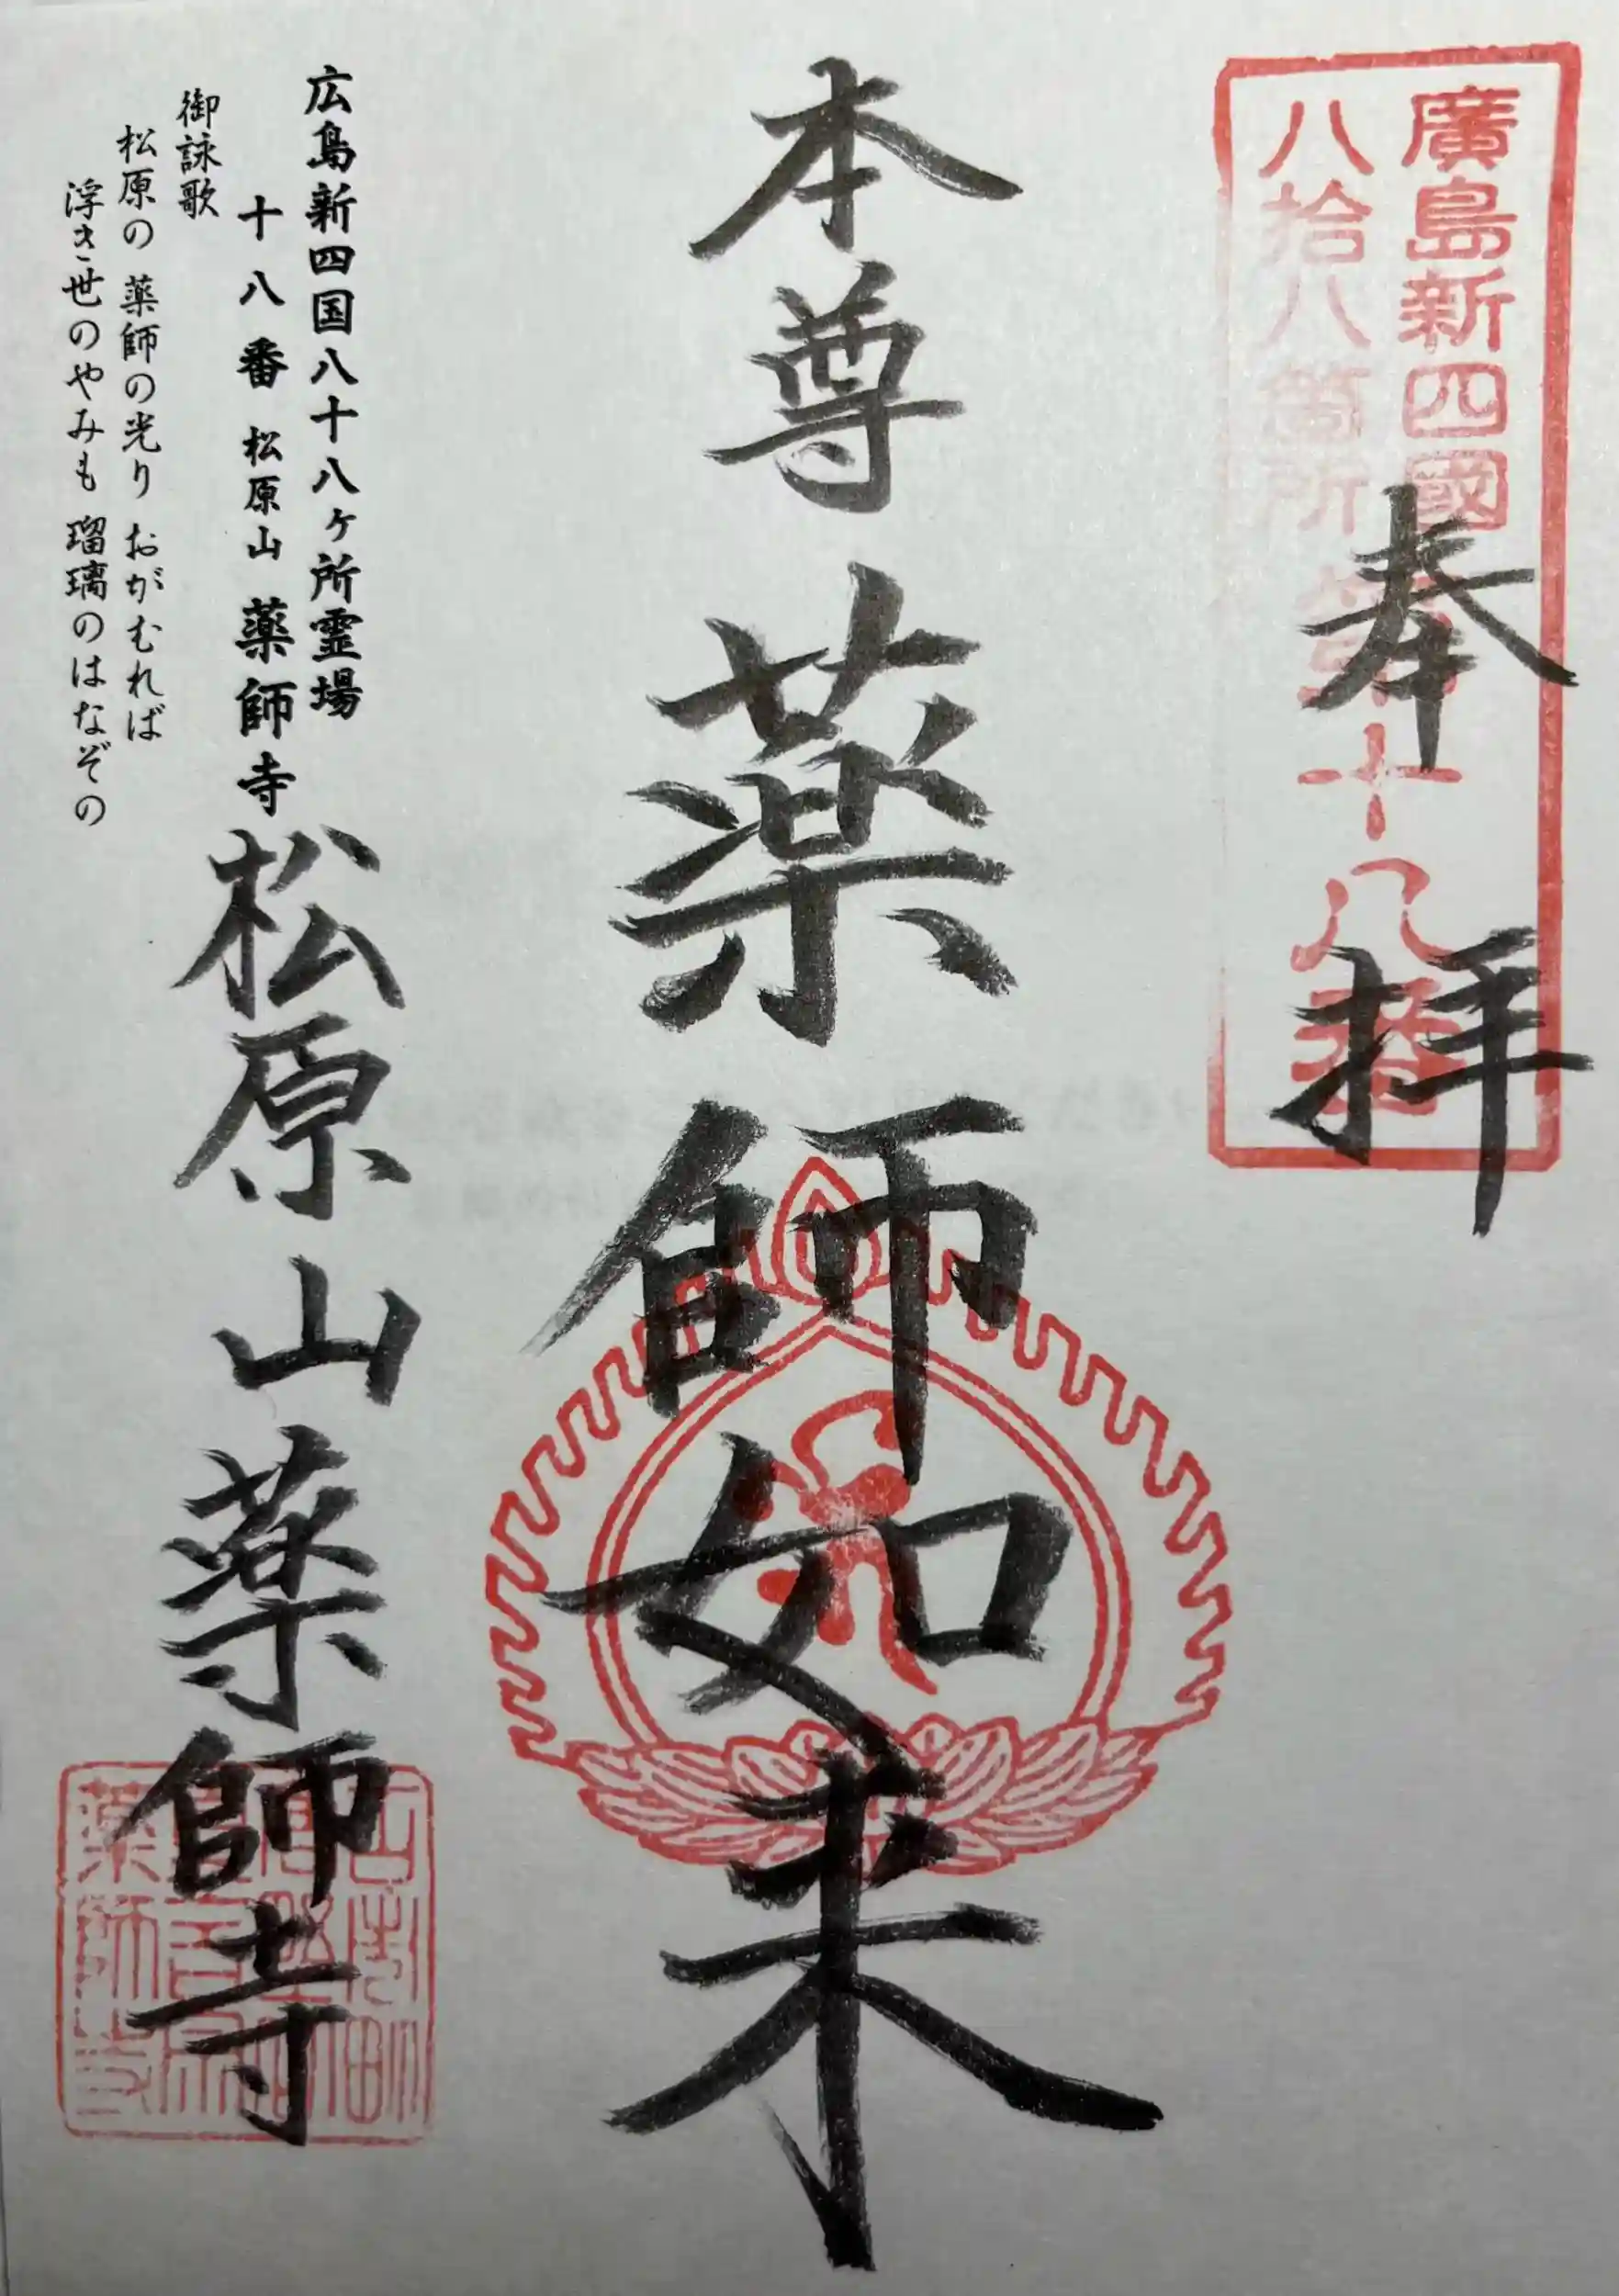 奉拝
廣島新四國
八拾八箇所
第十八番
本尊 薬師如来
広島新四国八十八ヶ所霊場
十八番 松原山 薬師寺
御詠歌
松原の 薬師の光り おがむれば
浮き世のやみも 瑠璃のはなぞの
松原山薬師寺
薬師寺